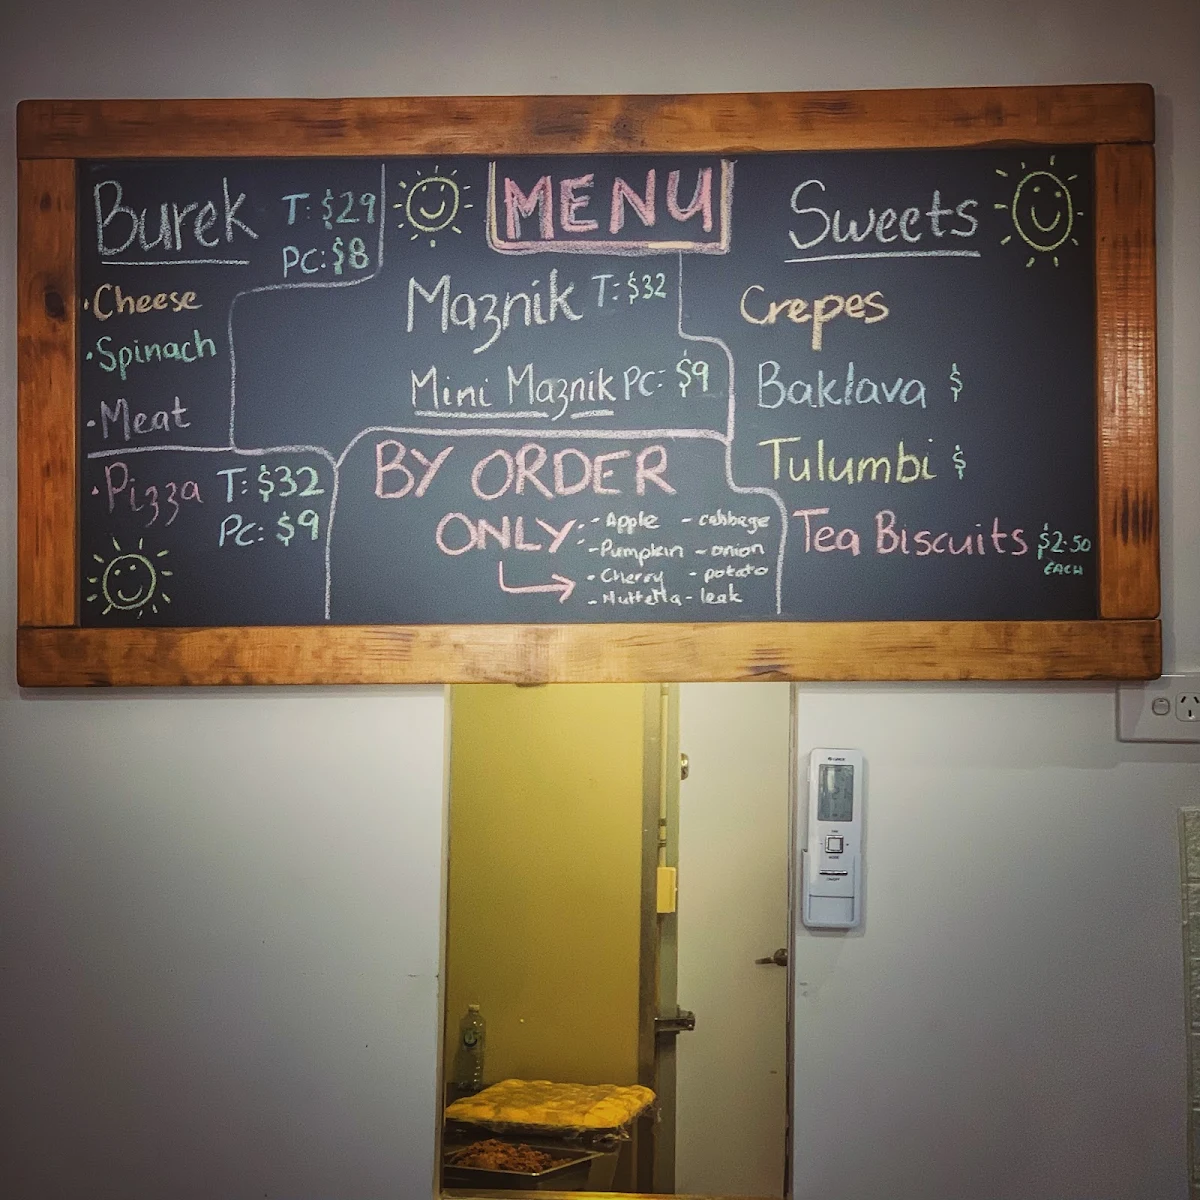 MENU
Burek T: $29
PC: $8
·Cheese
·Spinach
·Meat
·Pizza T: $32
PC: $9
Maznik T: $32
Mini Maznik PC: $9
BY ORDER
ONLY:
- Apple - cabbage
- Pumpkin - onion
- Cherry - potato
- Nuttella - leak
Sweets
Crepes
Baklava $
Tulumbi $
Tea Biscuits $2.50
EACH